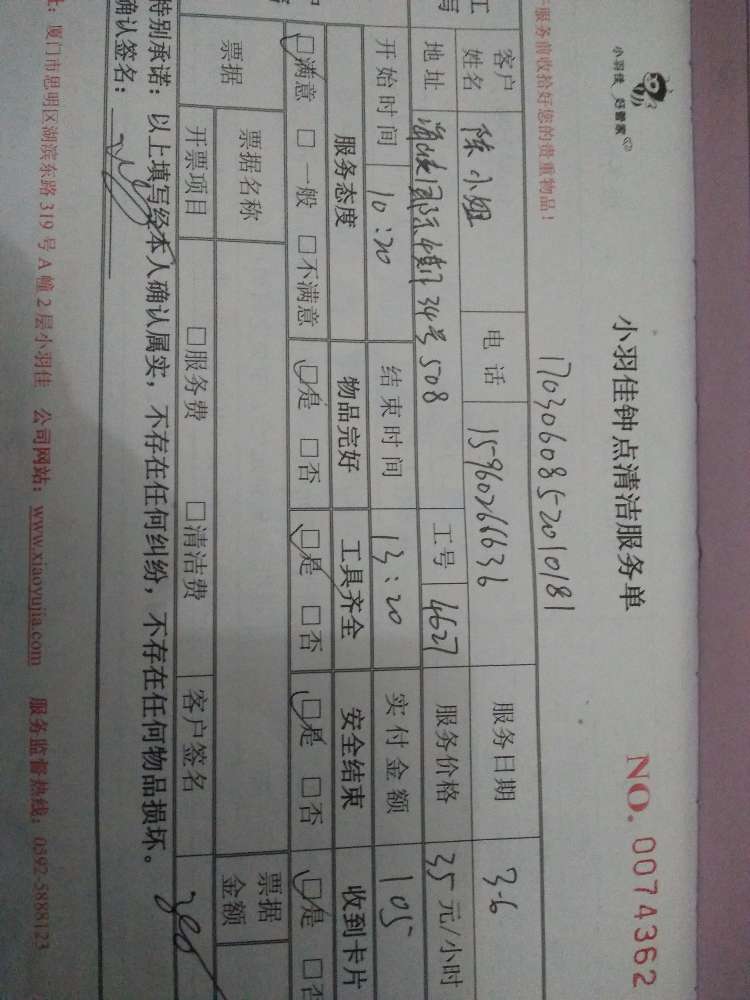 小羽佳 好管家
小羽佳钟点清洁服务单
NO. 0074362
服务前收拾好您的贵重物品！
17030608520 10181
客户姓名 陈小姐 电话 15960266636 服务日期 3-6
地址 国际 34号508 工号 4627 服务价格 35 元/小时
开始时间 10:20 结束时间 13:20 实付金额 105
服务态度 物品完好 工具齐全 安全结束 收到卡片
□满意 □一般 □不满意 □是 □否 □是 □否 □是 □否 □是 □否
票据 票据名称 票据金额
开票项目 □服务费 □清洁费 客户签名
特别承诺：以上填写经本人确认属实，不存在任何纠纷，不存在任何物品损坏。
确认签名：
址：厦门市思明区湖滨东路319号A幢2层小羽佳 公司网站：www.xiaoyujia.com 服务监督热线：0592-5888123